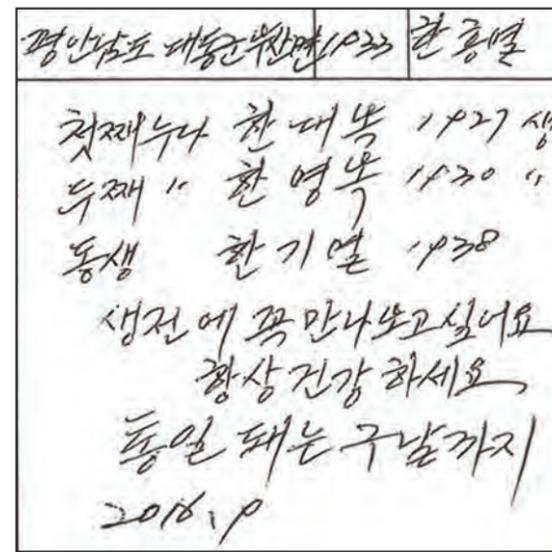 평안남도 대동군 부산면 1933 한흥열
첫째누나 한대녹 1927 생
두째 〃 한영녹 1930 〃
동생 한기열 1938
생전에 꼭 만나보고싶어요
항상건강하세요
통일돼는 구날까지
2016, 9